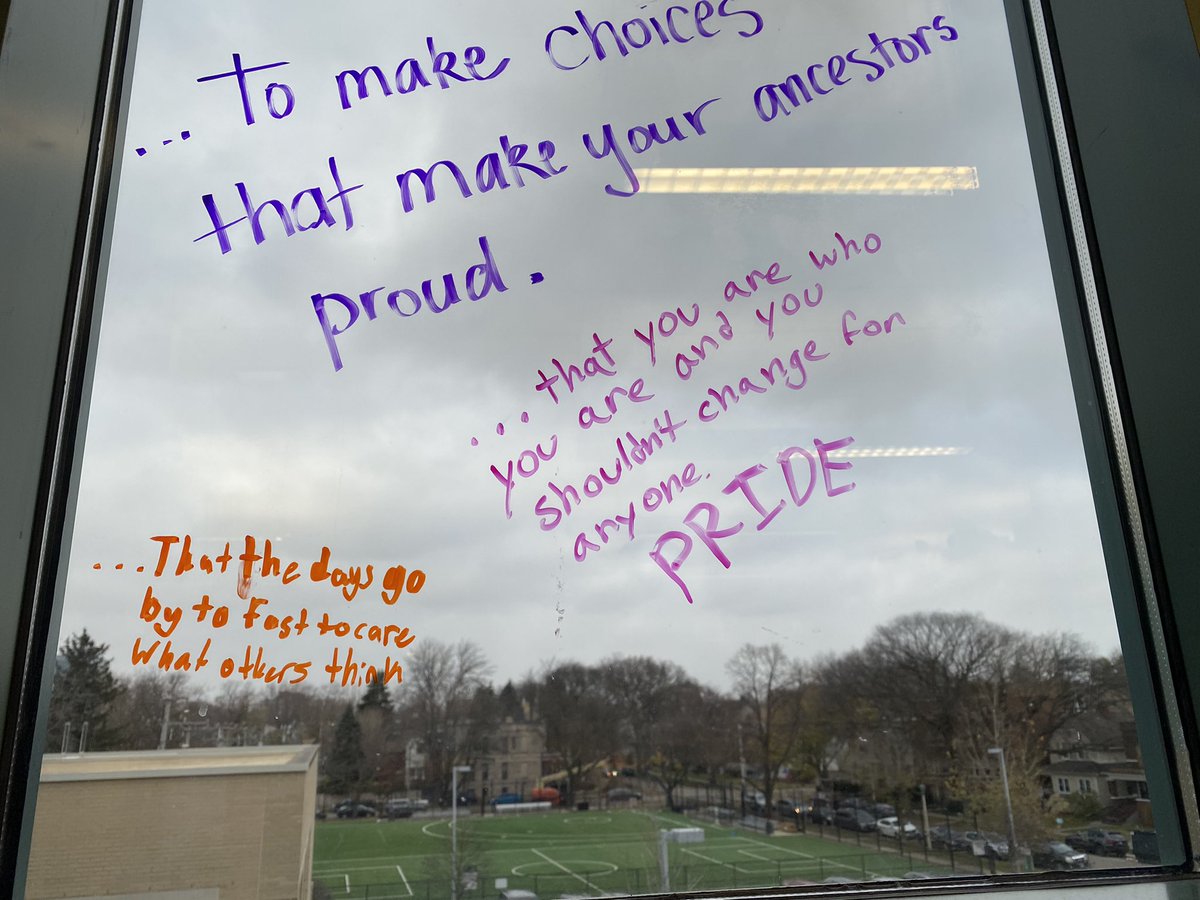 ... To make choices
that make your ancestors
proud.
... that you are who
you are and you
shouldn't change for
anyone.
PRIDE
... That the days go
by to fast to care
What others think